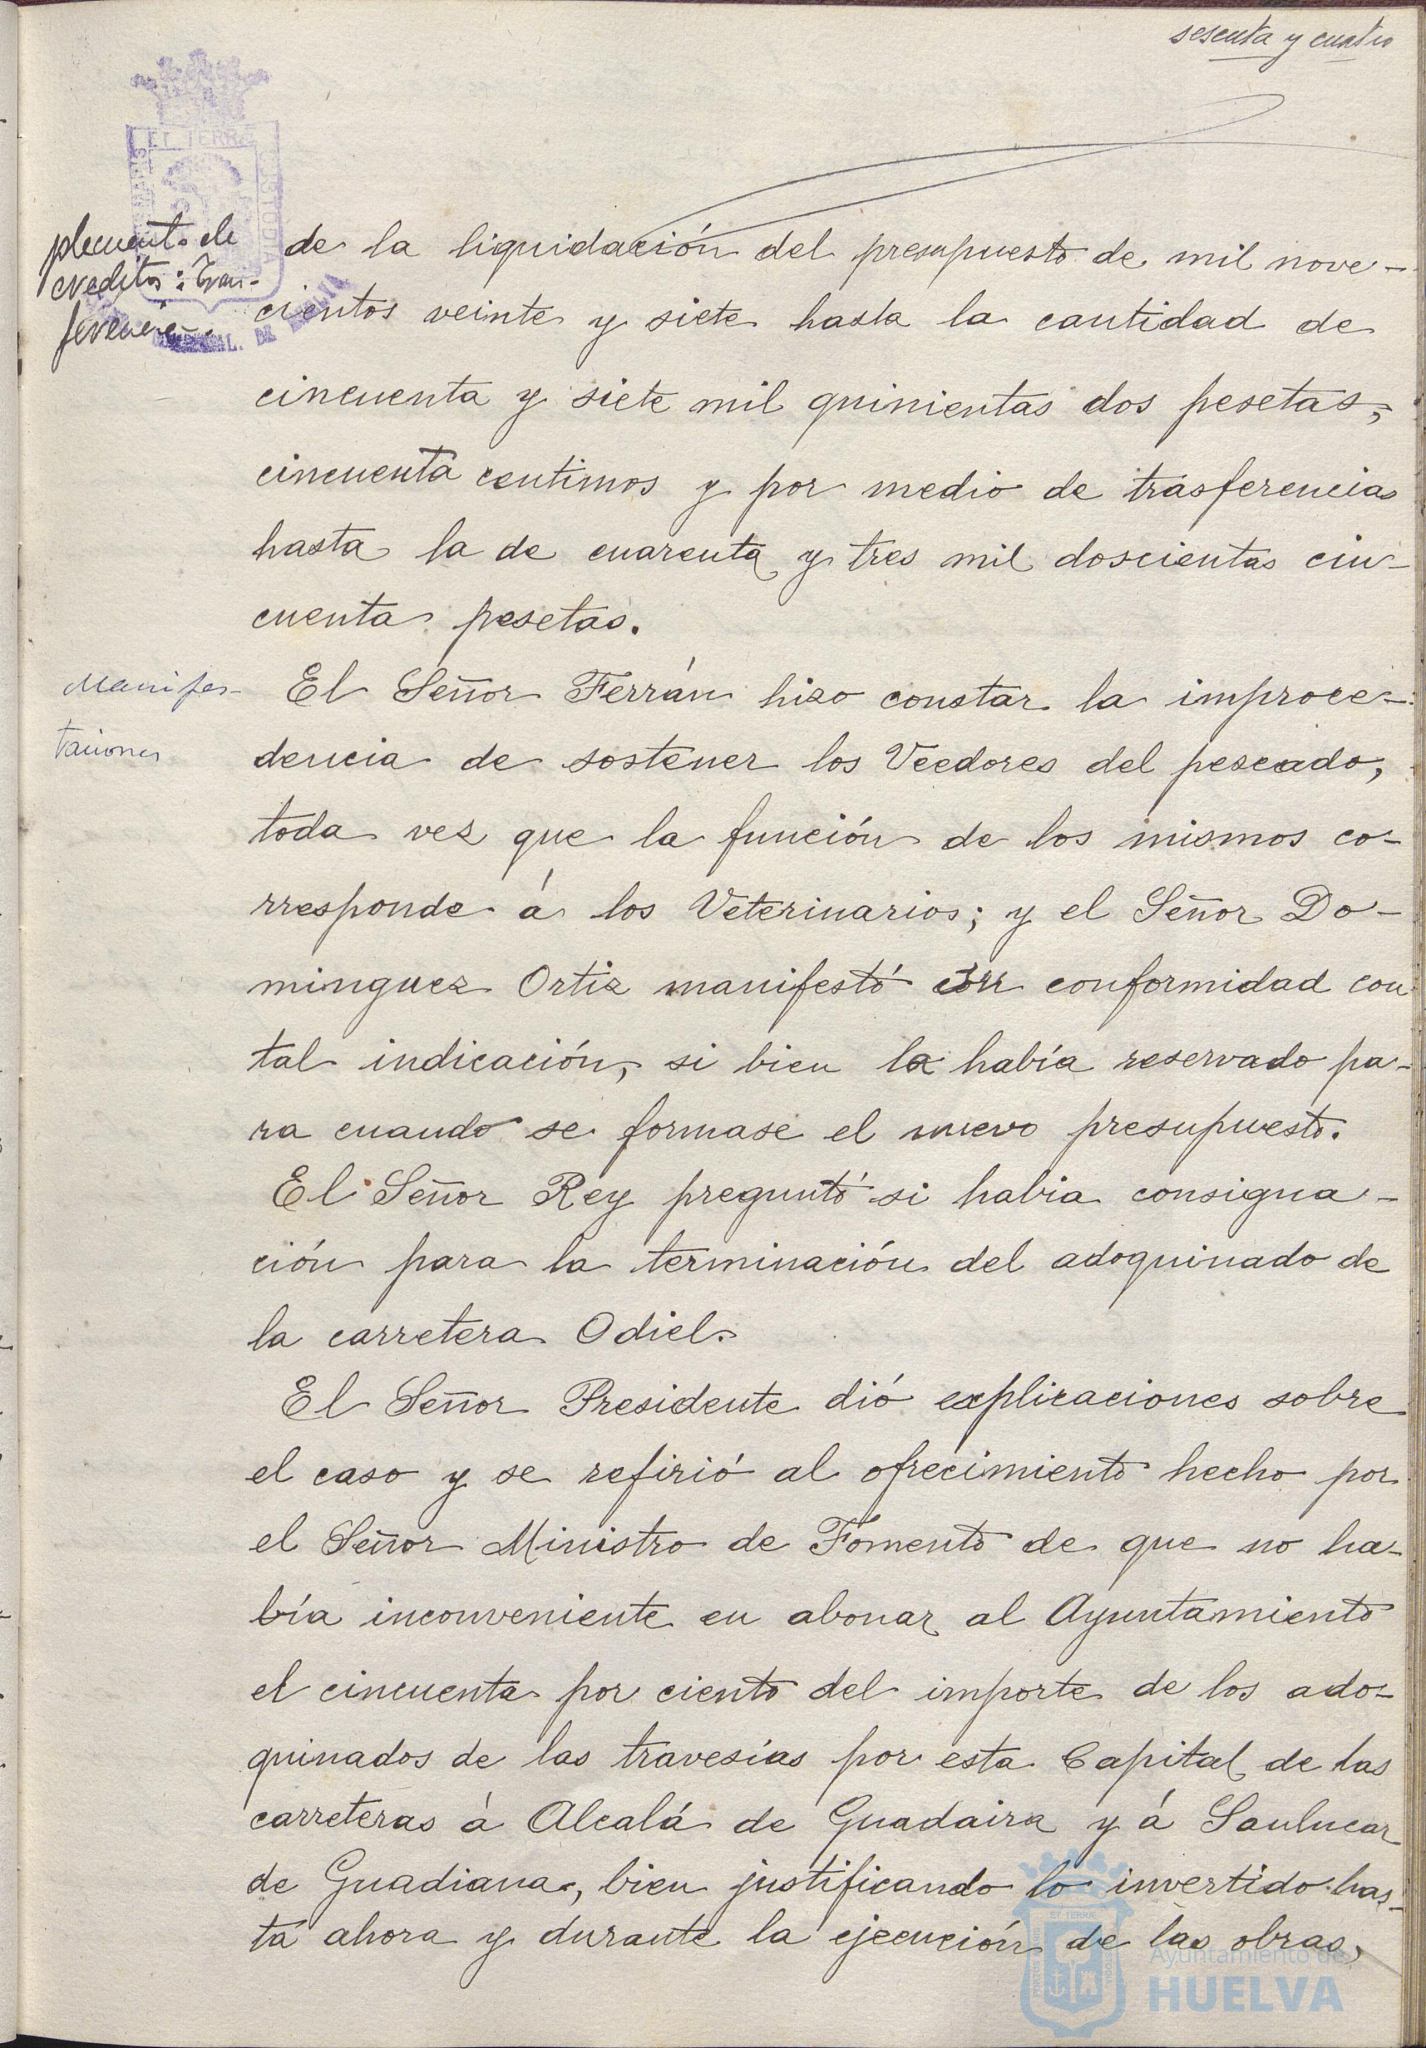 sesenta y cuatro
plemento de
creditos: Trans-
ferencia.
de la liquidación del presupuesto de mil nove-
cientos veinte y siete hasta la cantidad de
cincuenta y siete mil quinientas dos pesetas,
cincuenta centimos y por medio de trasferencias
hasta la de cuarenta y tres mil doscientas cin-
cuenta pesetas.
Manifes-
taciones
El Señor Ferrán hizo constar la improce-
dencia de sostener los Veedores del pescado,
toda vez que la función de los mismos co-
rresponde á los Veterinarios; y el Señor Do-
minguez Ortiz manifestó su conformidad con
tal indicación, si bien la había reservado pa-
ra cuando se formase el nuevo presupuesto.
El Señor Rey preguntó si habia consigna-
ción para la terminación del adoquinado de
la carretera Odiel.
El Señor Presidente dió explicaciones sobre
el caso y se refirió al ofrecimiento hecho por
el Señor Ministro de Fomento de que no ha-
bía inconveniente en abonar al Ayuntamiento
el cincuenta por ciento del importe de los ado-
quinados de las travesías por esta Capital de las
carreteras á Alcalá de Guadaira y á Sanlucar
de Guadiana, bien justificando lo invertido has-
ta ahora y durante la ejecución de las obras,
Ayuntamiento de
HUELVA